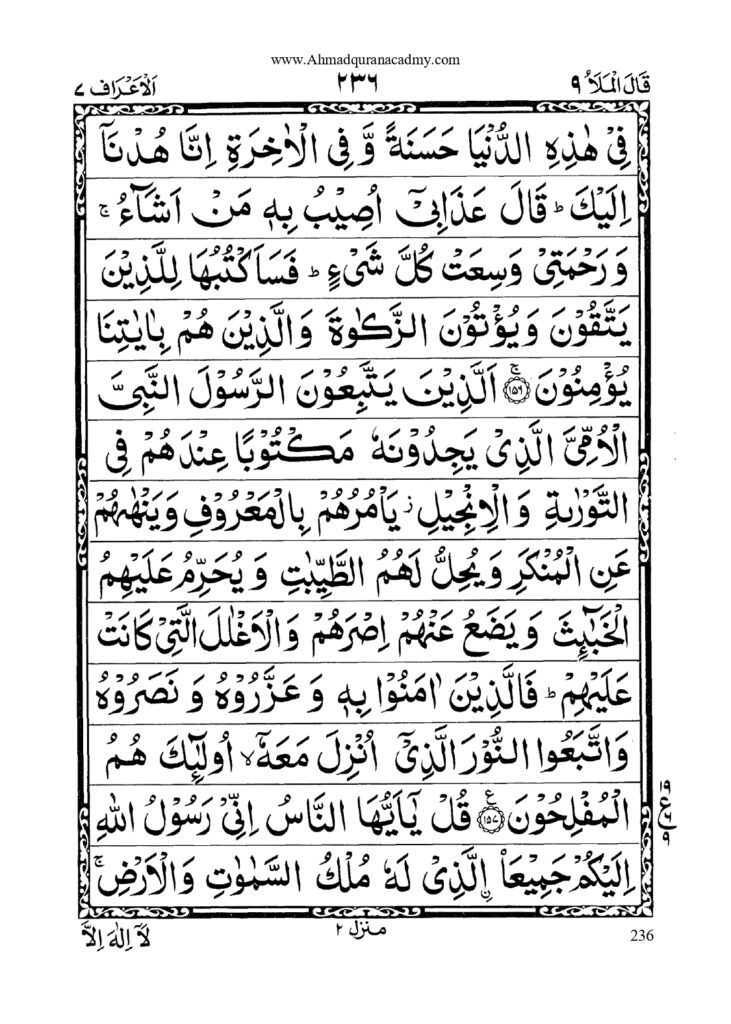 www.Ahmadquranacadmy.com
قَالَ الْمَلَاُ ٩
٢٣٦
اَلْاَعْرَاف ٧
فِیْ هٰذِهِ الدُّنْیَا حَسَنَةً وَّ فِی الْاٰخِرَةِ اِنَّا هُدْنَاۤ
اِلَیْكَ ؕ قَالَ عَذَابِیْۤ اُصِیْبُ بِهٖ مَنْ اَشَآءُ ۚ
وَ رَحْمَتِیْ وَسِعَتْ كُلَّ شَیْءٍ ؕ فَسَاَكْتُبُهَا لِلَّذِیْنَ
یَتَّقُوْنَ وَیُؤْتُوْنَ الزَّكٰوةَ وَالَّذِیْنَ هُمْ بِاٰیٰتِنَا
یُؤْمِنُوْنَ ۚ ﴿١٥٦﴾ اَلَّذِیْنَ یَتَّبِعُوْنَ الرَّسُوْلَ النَّبِیَّ
الْاُمِّیَّ الَّذِیْ یَجِدُوْنَهٗ مَكْتُوْبًا عِنْدَهُمْ فِی
التَّوْرٰىةِ وَ الْاِنْجِیْلِ ؗ یَاْمُرُهُمْ بِالْمَعْرُوْفِ وَیَنْهٰىهُمْ
عَنِ الْمُنْكَرِ وَیُحِلُّ لَهُمُ الطَّیِّبٰتِ وَ یُحَرِّمُ عَلَیْهِمُ
الْخَبٰٓىِٕثَ وَ یَضَعُ عَنْهُمْ اِصْرَهُمْ وَالْاَغْلٰلَ الَّتِیْ كَانَتْ
عَلَیْهِمْ ؕ فَالَّذِیْنَ اٰمَنُوْا بِهٖ وَ عَزَّرُوْهُ وَ نَصَرُوْهُ
وَاتَّبَعُوا النُّوْرَ الَّذِیْۤ اُنْزِلَ مَعَهٗۤ ۙ اُولٰٓىِٕكَ هُمُ
الْمُفْلِحُوْنَ ﴿١٥٧﴾ ع قُلْ یٰۤاَیُّهَا النَّاسُ اِنِّیْ رَسُوْلُ اللّٰهِ
١٩
ع
٦
٩
اِلَیْكُمْ جَمِیْعَا ۨ الَّذِیْ لَهٗ مُلْكُ السَّمٰوٰتِ وَالْاَرْضِ ۚ
لَاۤ اِلٰهَ اِلَّا
منزل ٢
236